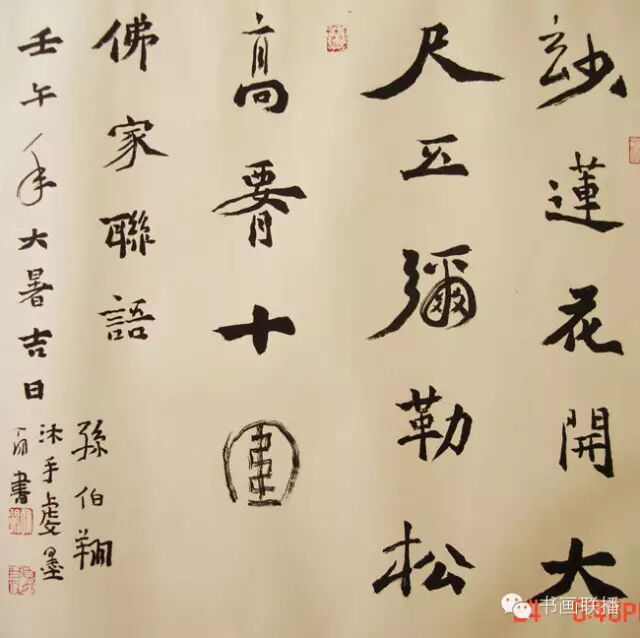 玅蓮花開大
尺五彌勒松
高𦝫十圍
佛家聯語
壬午年大暑吉日
孫伯翔
沐手虔墨
書
书画联播